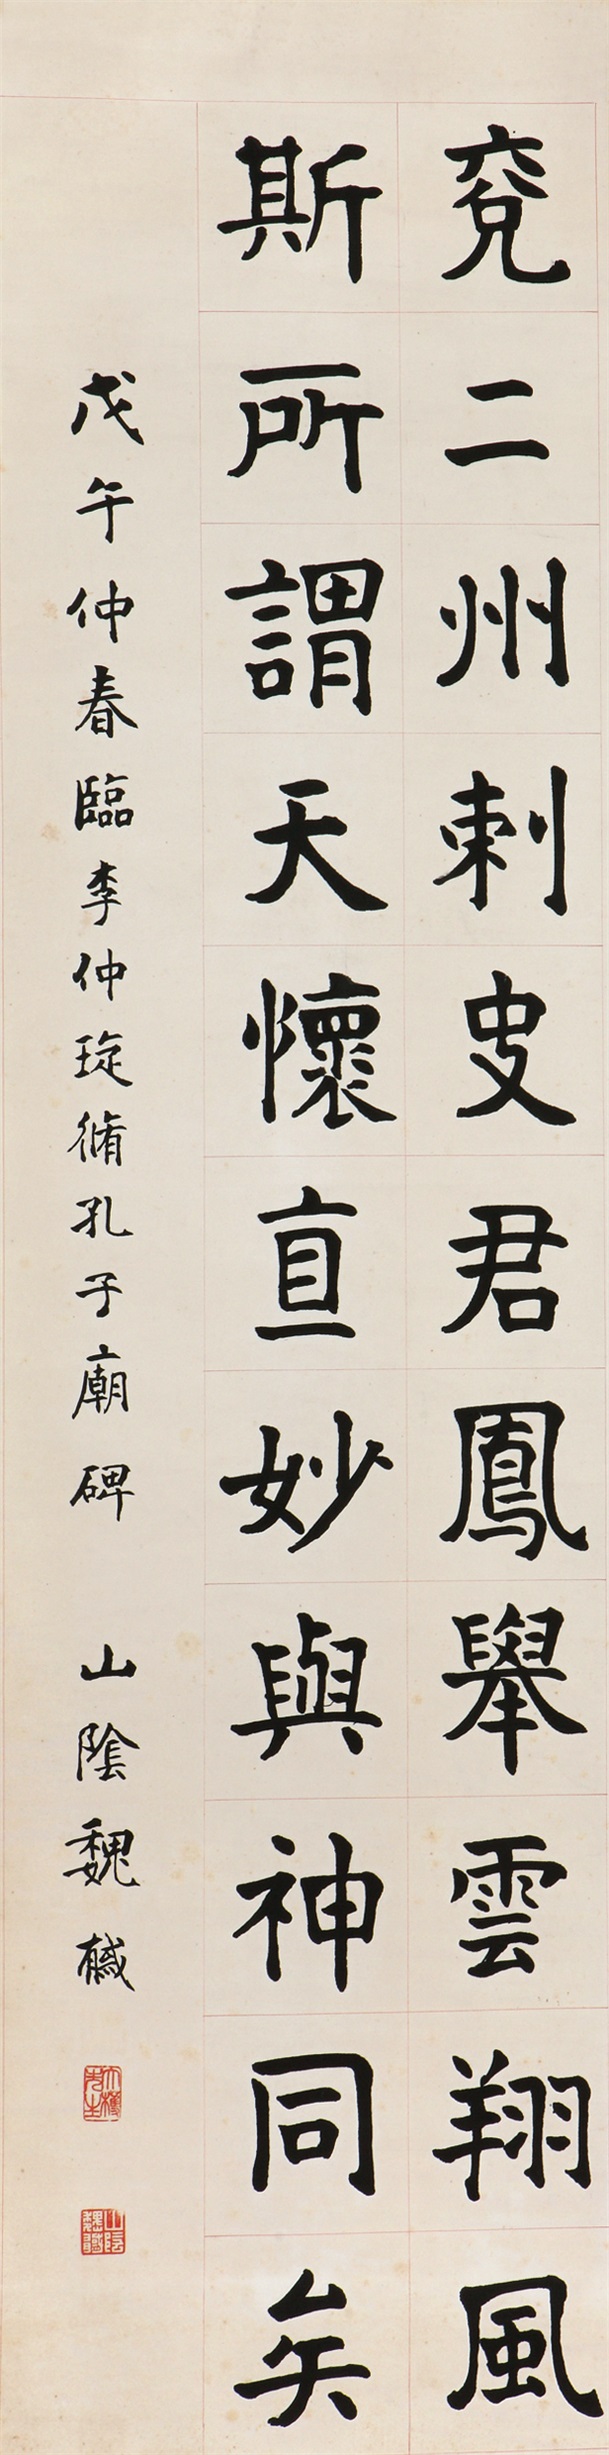 兖二州刺史君鳳舉雲翔風
斯所謂天懷直妙與神同矣
戊午仲春臨李仲琁脩孔子廟碑 山陰魏戫
山陰魏戫